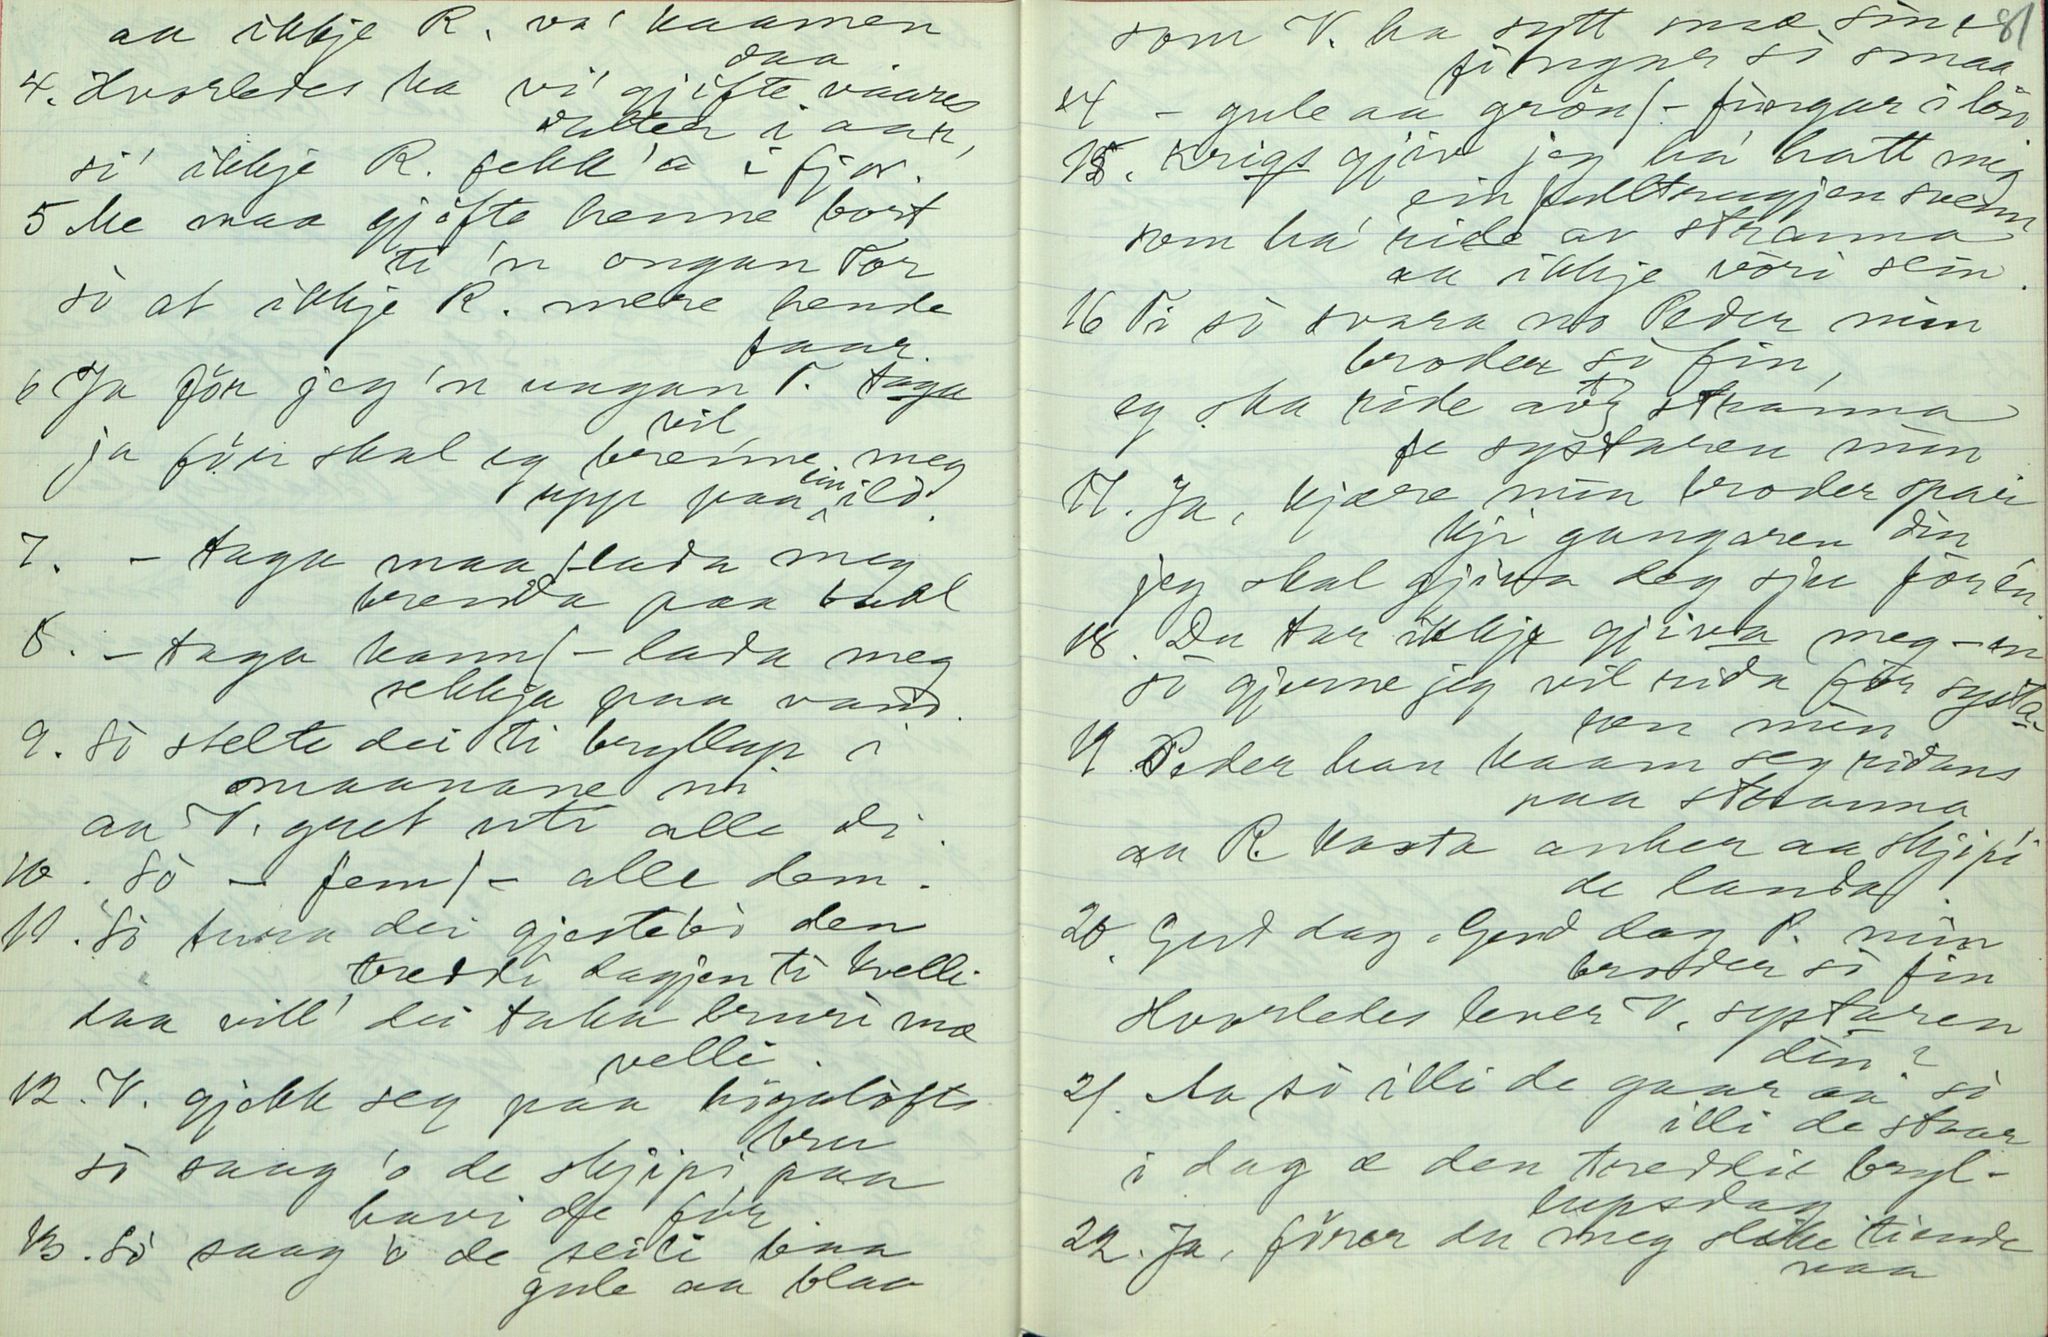 aa ikkje R. va' kaamen
daa
4. Hvorledes ka vi gjifte vaares
datter i aar,
si' ikkje R. fekk'a i fjor.
5 Me maa gjöfte henne bort
ti 'n ongan Tor
sò at ikkje R. mere hende
faar.
6 Ja för jeg 'n ungan T. taga
vil
ja förr skal eg brenne meg
upp paa ein ild.
7. – taga maa /– lada meg
brenda paa baal
8. – taga kann /– lada meg
sekkja paa vand.
9. Sò stelte dei ti bryllup i
maanane ni
aa V. gret uti alle di.
10. Sò – fem /– alle dem.
11. Sò tura dei gjestebò den
treddi dagjen ti kvelli
daa vill' dei taka bruri mæ
velli.
12. V. gjekk seg paa högelofts
bru
sò saag 'o de skjipi paa
havi de for
13. Sò saag 'o de seili baa
gule aa blaa
81
som V. ha sytt mæ sine
fingur sò smaa
14 – gule aa grön /– fingar i lön
15. Krigs gjiv jeg ha' hatt mig
ein fulltrugjen svenn
som ha' ride av stranna
aa ikkje vöri sein.
16 Ti sò svara no Peder min
broder sò fin,
eg ska ride av stranna
fe systaren min
17. Ja, kjære min broder spar
kji gangaren din
jeg skal gjiva deg sju för ein.
18. Du tar ikkje gjiva meg – ein
sò gjerne jeg vil rida för systa-
ren min
19 Peder han kaam seg ridans
paa stranna
aa R. kasta anker aa skjipi
de landa.
20. God dag, God dag P. min
broder sò fin
Hvorledes lever V. systaren
din?
21. Aa sò illi de gaar aa sò
illi de staar
i dag æ den treddie bryl-
lupsdag
22. Ja, förer du meg slike tiende
naa